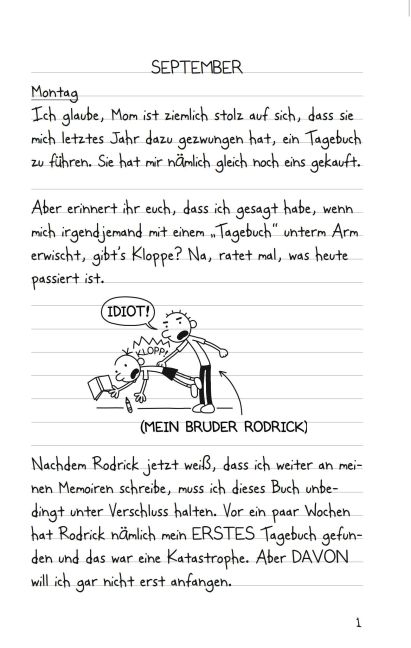 SEPTEMBER
Montag
Ich glaube, Mom ist ziemlich stolz auf sich, dass sie
mich letztes Jahr dazu gezwungen hat, ein Tagebuch
zu führen. Sie hat mir nämlich gleich noch eins gekauft.
Aber erinnert ihr euch, dass ich gesagt habe, wenn
mich irgendjemand mit einem „Tagebuch“ unterm Arm
erwischt, gibt's Kloppe? Na, ratet mal, was heute
passiert ist.
IDIOT!
KLOPP!
(MEIN BRUDER RODRICK)
Nachdem Rodrick jetzt weiß, dass ich weiter an mei-
nen Memoiren schreibe, muss ich dieses Buch unbe-
dingt unter Verschluss halten. Vor ein paar Wochen
hat Rodrick nämlich mein ERSTES Tagebuch gefun-
den und das war eine Katastrophe. Aber DAVON
will ich gar nicht erst anfangen.
1